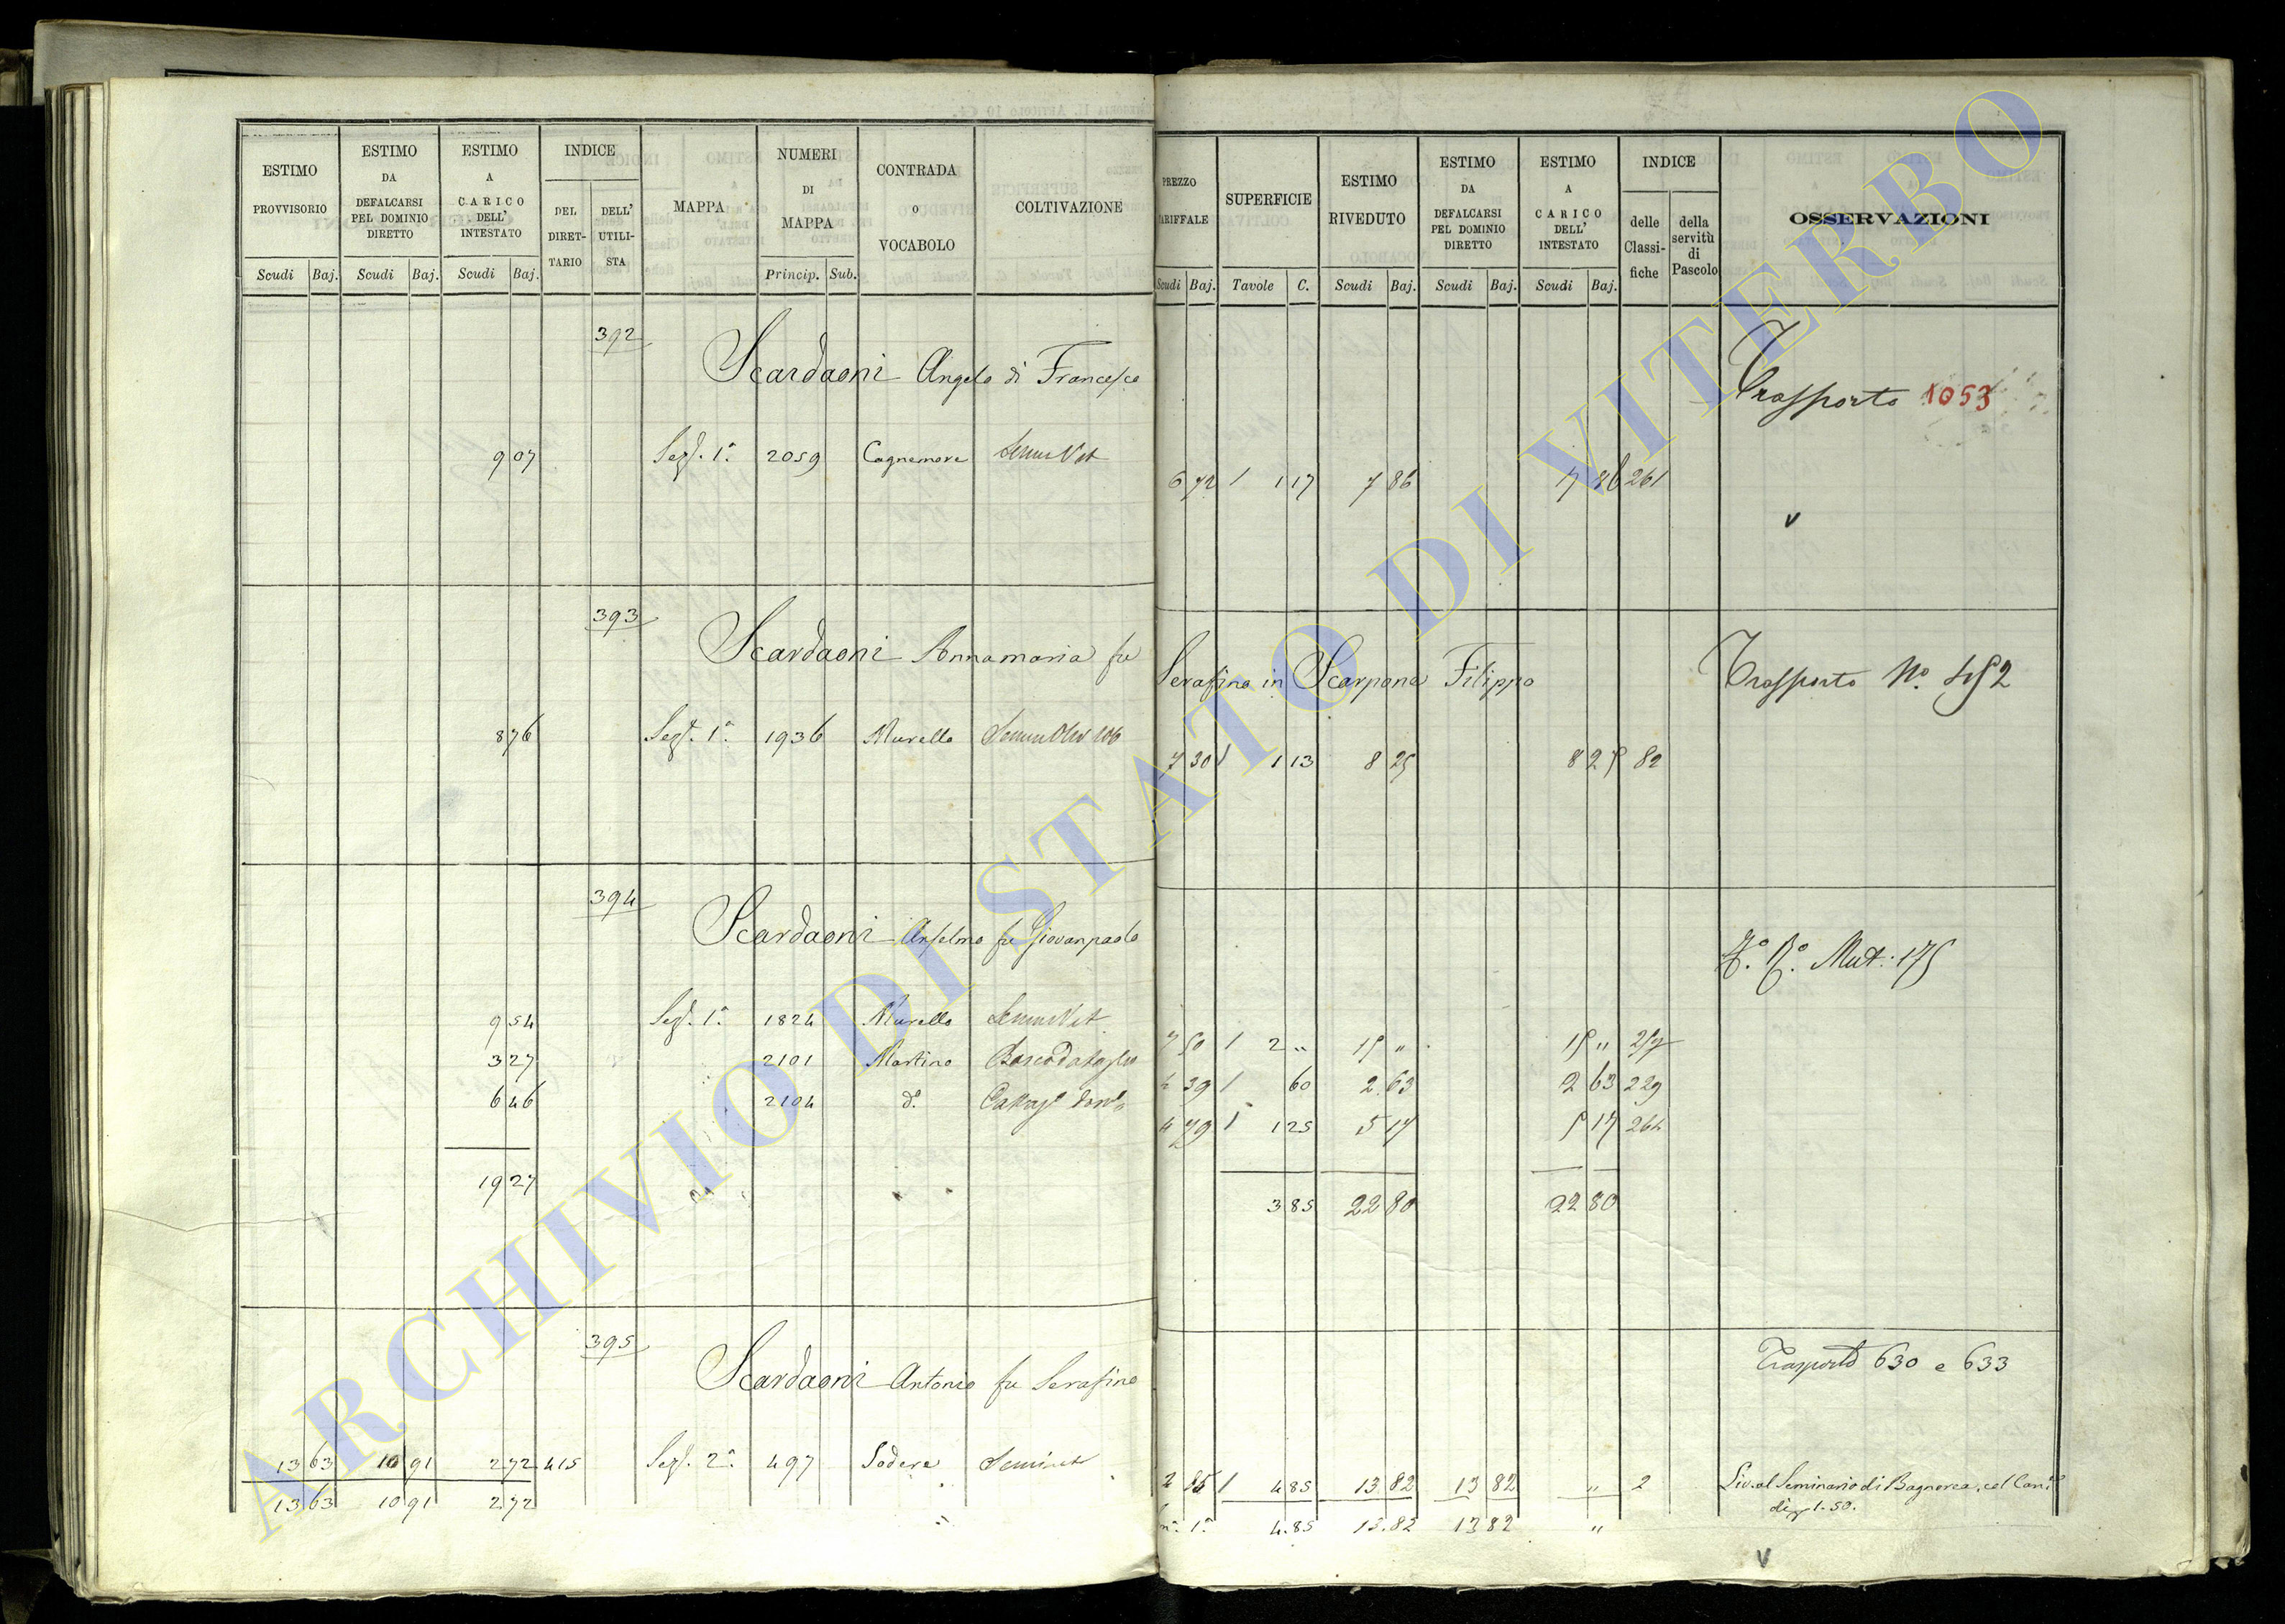 ESTIMO PROVVISORIO Scudi Baj.
ESTIMO DA DEFALCARSI PEL DOMINIO DIRETTO Scudi Baj.
ESTIMO A CARICO DELL' INTESTATO Scudi Baj.
INDICE DEL DIRETTARIO DELL' UTILISTA
MAPPA
NUMERI DI MAPPA Princip. Sub.
CONTRADA o VOCABOLO
COLTIVAZIONE
PREZZO TARIFFALE Scudi Baj.
SUPERFICIE Tavole C.
ESTIMO RIVEDUTO Scudi Baj.
ESTIMO DA DEFALCARSI PEL DOMINIO DIRETTO Scudi Baj.
ESTIMO A CARICO DELL' INTESTATO Scudi Baj.
INDICE delle Classifiche della servitù di Pascolo
OSSERVAZIONI
392
Scardaoni Angelo di Francesco Trasporto 1053
9 07 Sez. 1a 2059 Cagnemore SemVit 6 72 1 1 17 7 86 7 86 261
v
393
Scardaoni Annamaria fu Serafino in Scarpone Filippo Trasporto No. 452
8 76 Sez. 1a 1936 Murello 7 30 1 1 13 8 25 8 25 82
394
Scardaoni Anselmo fu Giovanpaolo Mut: 175
9 54 Sez. 1a 1824 Murello SemVit 7 50 1 2 " 15 " 15 "
3 27 2101 Martino 4 39 1 60 2 63 2 63 229
6 46 2104 do 4 79 1 1 25 5 17 5 17 264
19 27 3 85 22 80 22 80
395
Scardaoni Antonio fu Serafino Trasporto 630 e 633
13 63 10 91 2 72 415 Sez. 2a 497 Sodere Seminat 2 85 1 4 85 13 82 13 82 " 2 Liv. al Seminario di Bagnorea, col Can.
di 1.50.
13 63 10 91 2 72 4.85 13.82 13 82 "
v
ARCHIVIO DI STATO DI VITERBO